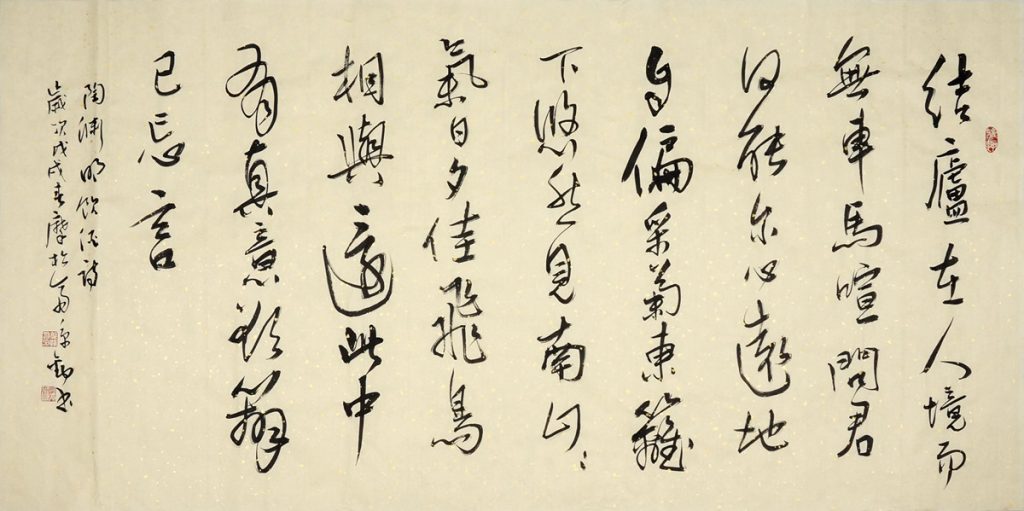 結廬在人境而
無車馬喧問君
何能尔心遠地
自偏采菊東籬
下悠然見南山〻
氣日夕佳飛鳥
相與還此中
有真意欲辨
已忘言
陶渊明饮酒詩
歲次戊戌春 於 书